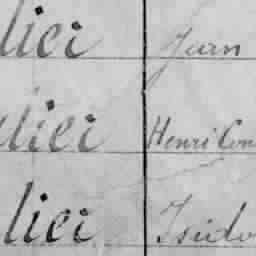 lici Jean
lici Henri Con
lici Isido